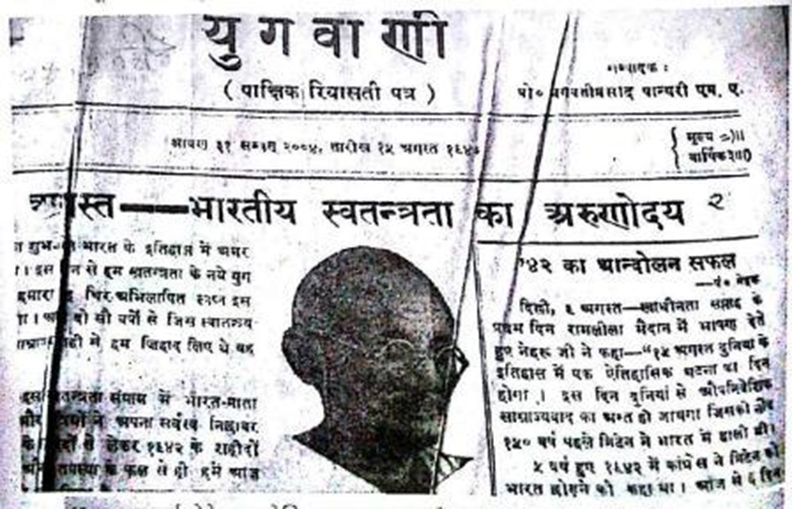 युगवाणी
( पाक्षिक रियासती पत्र )
सम्पादक :
प्रो० भगवतीप्रसाद पान्थरी एम. ए.
श्रावण ३१ सम्वत् २००४, तारीख १५ अगस्त १९४७
मूल्य =)॥
वार्षिक
अगस्त——भारतीय स्वतन्त्रता का अरुणोदय
भारत के इतिहास में अमर
से हम स्वतन्त्रता के नये युग
हमारा चिर-अभिलाषित स्वप्न इस
दो सौ वर्षों से जिस स्वातन्त्र्य
में हम जिहाद लिए थे वह
संग्राम में भारत-माता
ने अपना सर्वस्व निछावर
से लेकर १९४२ के शहीदों
के फल से ही हमें आज
'४२ का आन्दोलन सफल
—पं० नेहरू
दिल्ली, अगस्त—स्वाधीनता सप्ताह के
प्रथम दिन रामलीला मैदान में भाषण देते
हुए नेहरू जी ने कहा—"१५ अगस्त दुनिया के
इतिहास में एक ऐतिहासिक घटना का दिन
होगा । इस दिन दुनियां से औपनिवेशिक
साम्राज्यवाद का अन्त हो जायगा जिसकी नींव
१५० वर्ष पहले ब्रिटेन ने भारत में डाली थी।
५ वर्ष हुए १९४२ में कांग्रेस ने ब्रिटेन को
भारत छोड़ने को कहा था । आज से ६ दिन